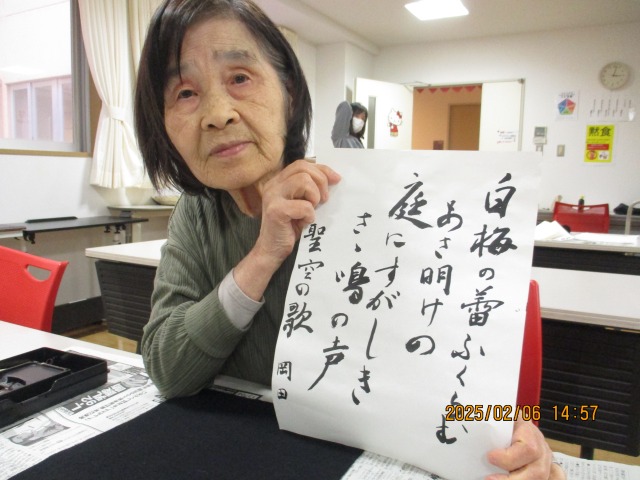 白梅の蕾ふくらむ
あさ明けの
庭にすがしき
さゝ鳴の声
聖空の歌
岡田
黙食
2025/02/06 14:57